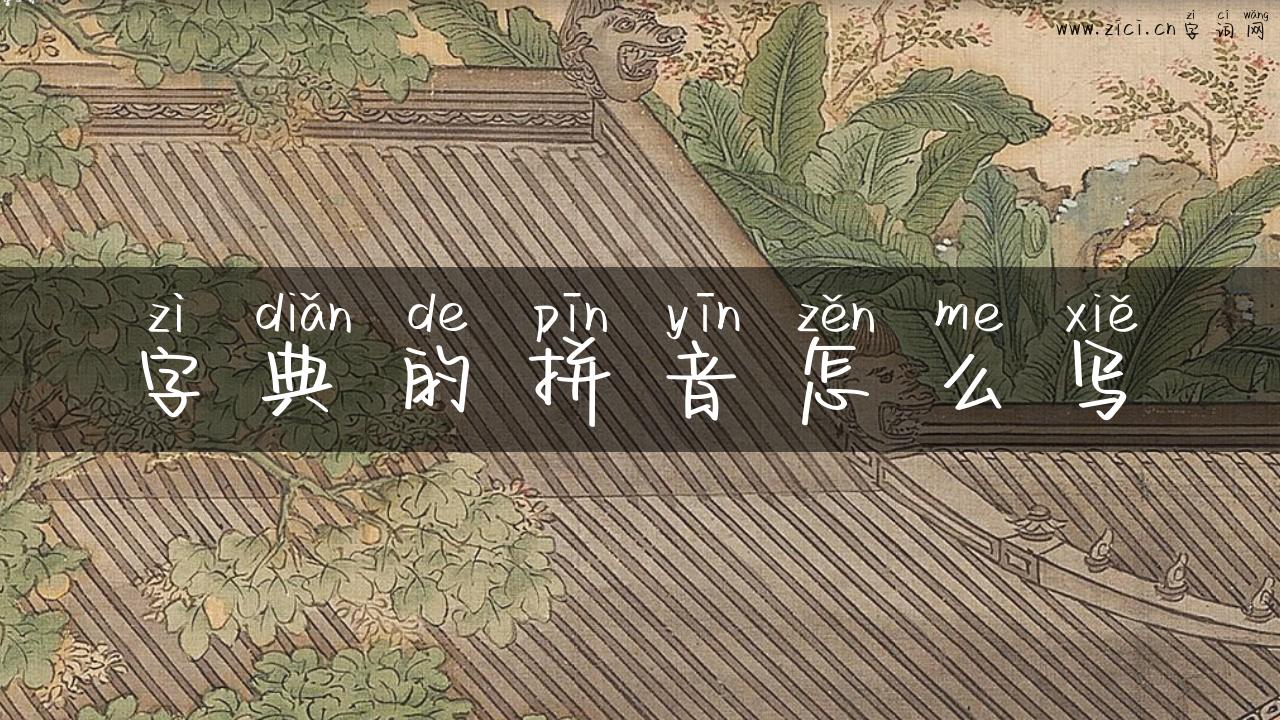 zì cí wǎng
www.zici.cn 字词网
zì diǎn de pīn yīn zěn me xiě
字典的拼音怎么写